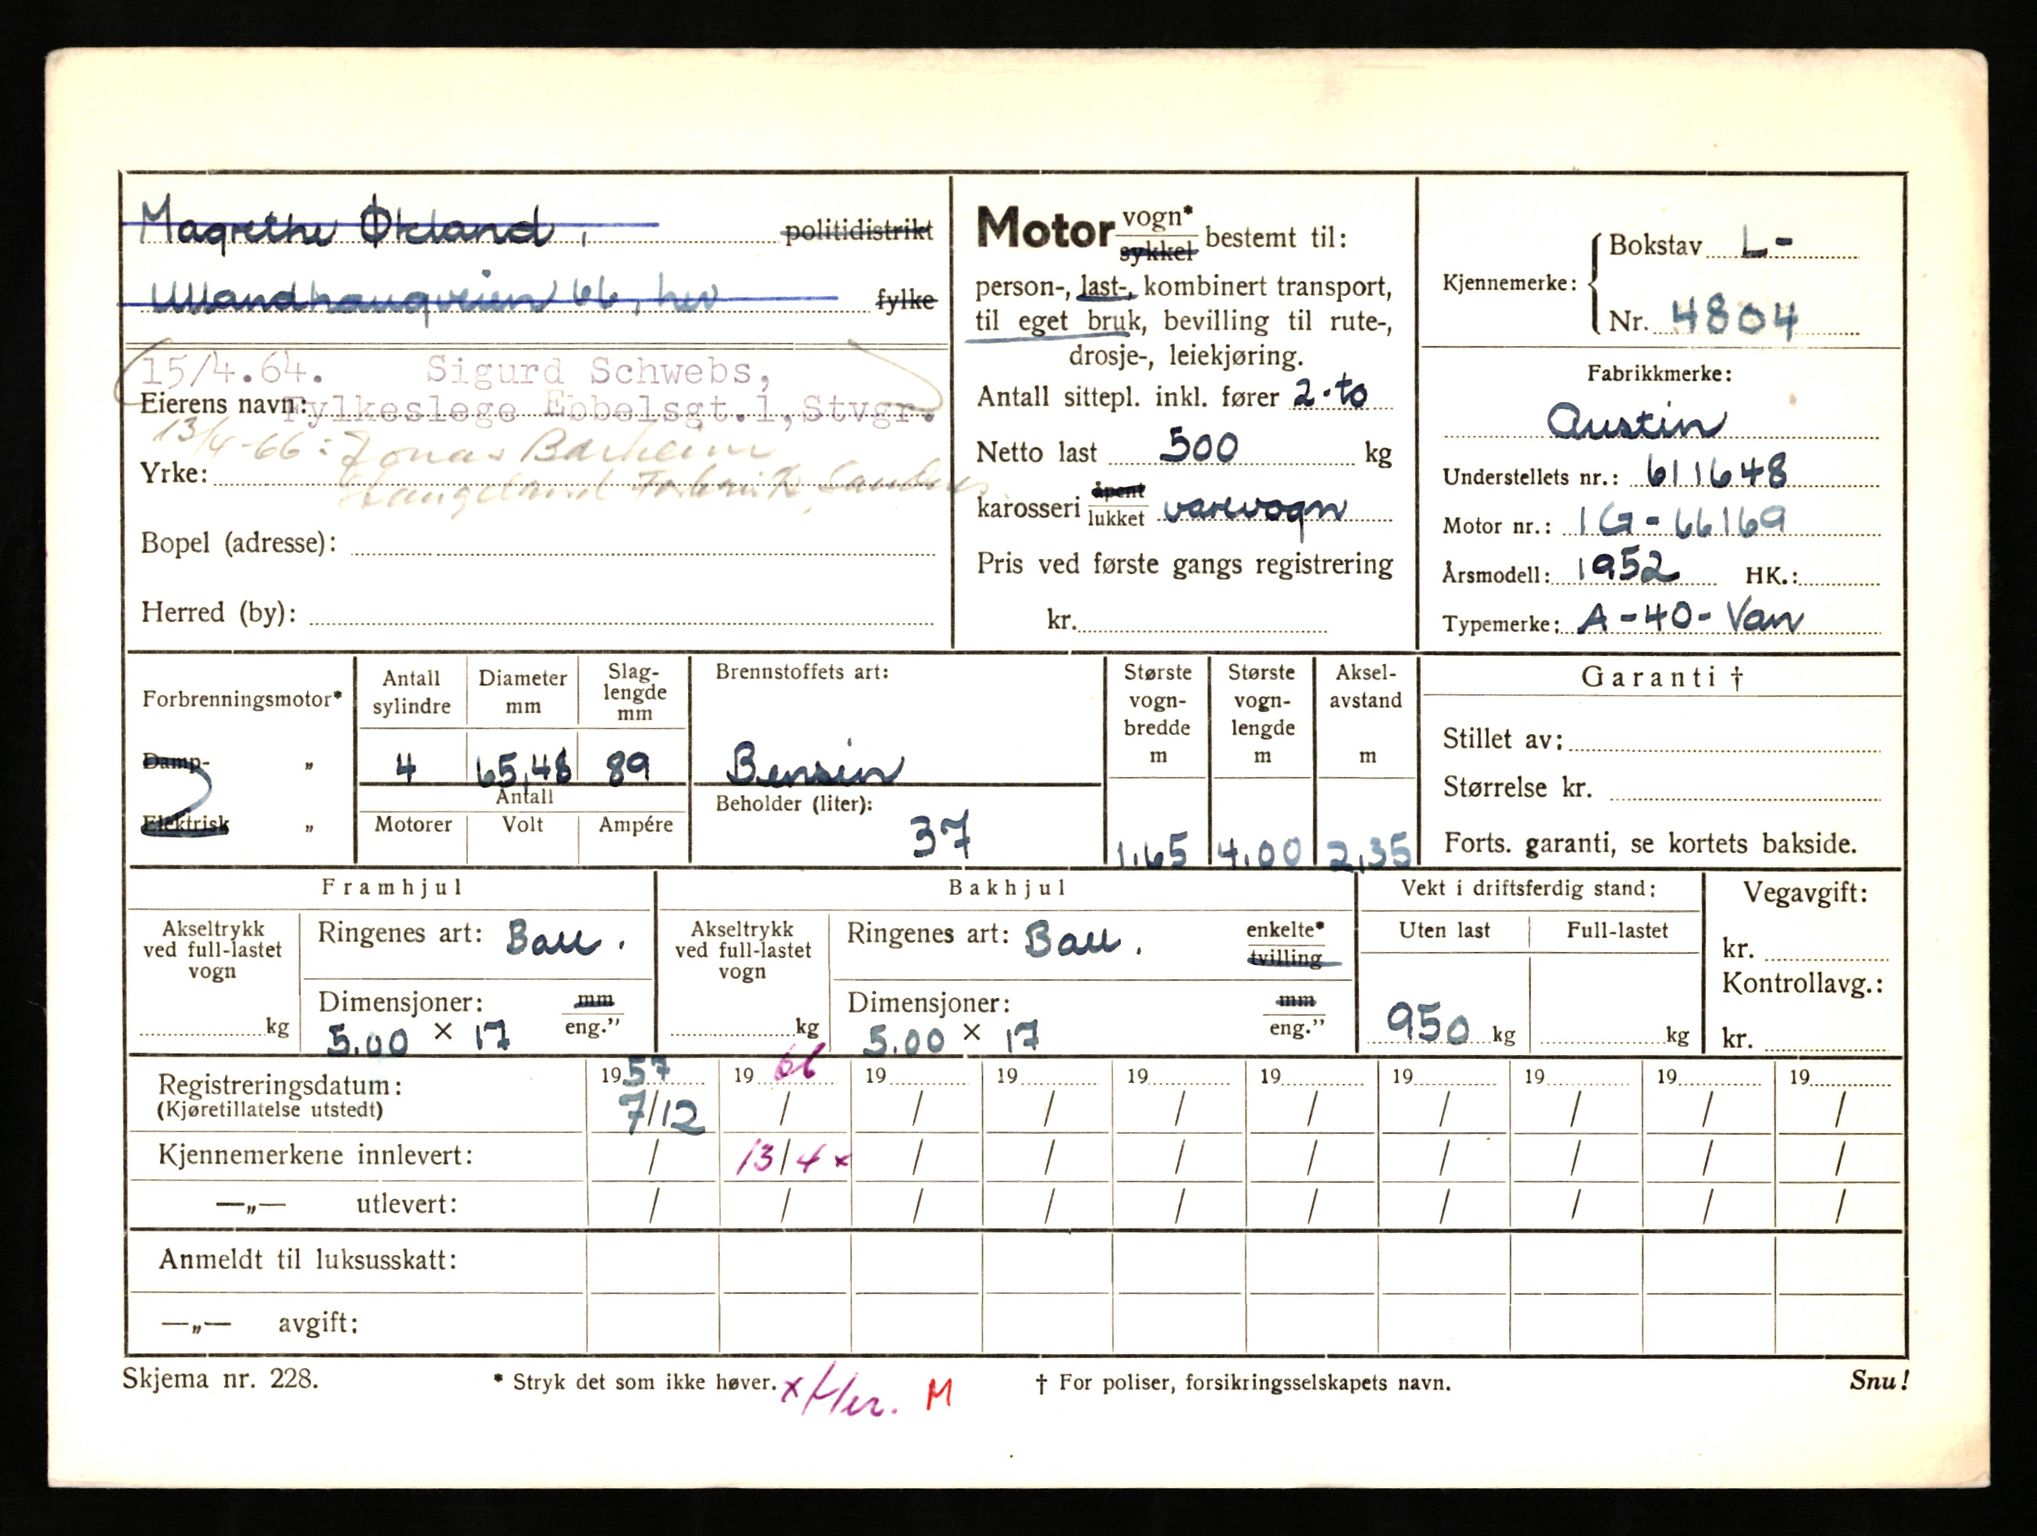 Magrethe Økland, politidistrikt
Ullandhaugveien 66, her fylke
15/4.64. Sigurd Schwebs,
Eierens navn: Fylkeslege Ebbelsgt.1, Stvgr.
13/4-66: Jonas Barheim
Yrke:
Bopel (adresse):
Herred (by):
Motor vogn* sykkel bestemt til:
person-, last-, kombinert transport,
til eget bruk, bevilling til rute-,
drosje-, leiekjøring.
Antall sittepl. inkl. fører 2-to
Netto last 500 kg
karosseri åpent lukket varevogn
Pris ved første gangs registrering
kr.
Kjennemerke: Bokstav L-
Nr. 4804
Fabrikkmerke:
Austin
Understellets nr.: 611648
Motor nr.: 1G-66169
Årsmodell: 1952 HK.:
Typemerke: A-40-Van
Forbrenningsmotor*
Damp- „
Elektrisk „
Antall sylindre
Diameter mm
Slag-lengde mm
4 65,48 89
Antall
Motorer Volt Ampére
Brennstoffets art:
Bensin
Beholder (liter):
37
Største vogn-bredde m
1.65
Største vogn-lengde m
4.00
Aksel-avstand m
2,35
Garanti †
Stillet av:
Størrelse kr.
Forts. garanti, se kortets bakside.
Framhjul
Akseltrykk ved full-lastet vogn
kg
Ringenes art: Ball.
Dimensjoner: mm
5.00 × 17 eng.”
Bakhjul
Akseltrykk ved full-lastet vogn
kg
Ringenes art: Ball. enkelte* tvilling
Dimensjoner: mm
5.00 × 17 eng.”
Vekt i driftsferdig stand:
Uten last Full-lastet
950 kg kg
Vegavgift:
kr.
Kontrollavg.:
kr.
Registreringsdatum: 1957 1966 19 19 19 19 19 19 19 19
(Kjøretillatelse utstedt) 7/12 / / / / / / / / /
Kjennemerkene innlevert: / 13/4 x / / / / / / / /
—„— utlevert: / / / / / / / / / /
Anmeldt til luksusskatt:
—„— avgift:
Skjema nr. 228. * Stryk det som ikke høver. x M † For poliser, forsikringsselskapets navn. Snu!